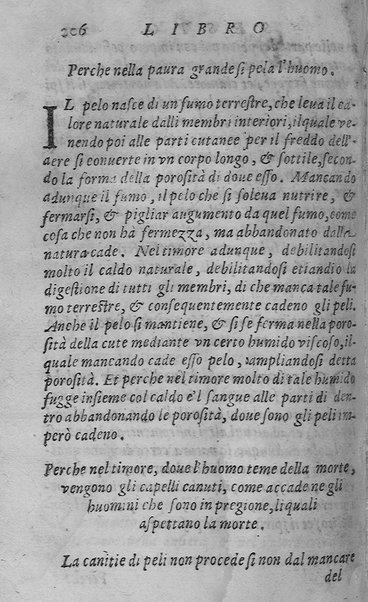 206 LIBRO
Perche nella paura grande si pela l'huomo.
IL pelo nasce di un fumo terrestre, che leua il ca-
lore naturale dalli membri interiori, il quale ve-
nendo poi alle parti cutanee per il freddo dell'-
aere si conuerte in vn corpo longo, & sottile, secon-
do la forma della porosità di doue esso. Mancando
adunque il fumo, il pelo che si soleua nutrire, &
fermarsi, & pigliar augumento da quel fumo, come
cosa che non hà fermezza, ma abbandonato dalla
natura cade. Nel timore adunque, debilitandosi
molto il caldo naturale, debilitandosi etiandio la
digestione di tutti gli membri, di che manca tale fu-
mo terrestre, & consequentemente cadeno gli peli.
Anche il pelo si mantiene, & si se ferma nella poro-
sità della cute mediante vn certo humido viscoso, il
quale mancando cade esso pelo, ampliandosi detta
porosità. Et perche nel timore molto di tale humido
fugge insieme col caldo e'l sangue alle parti di den-
tro abbandonando le porosità, doue sono gli peli im-
però cadeno.
Perche nel timore, doue l'huomo teme della morte,
vengono gli capelli canuti, come accade ne gli
huomini che sono in pregione, li quali
aspettano la morte.
La canitie di peli non procede si non dal mancare
del